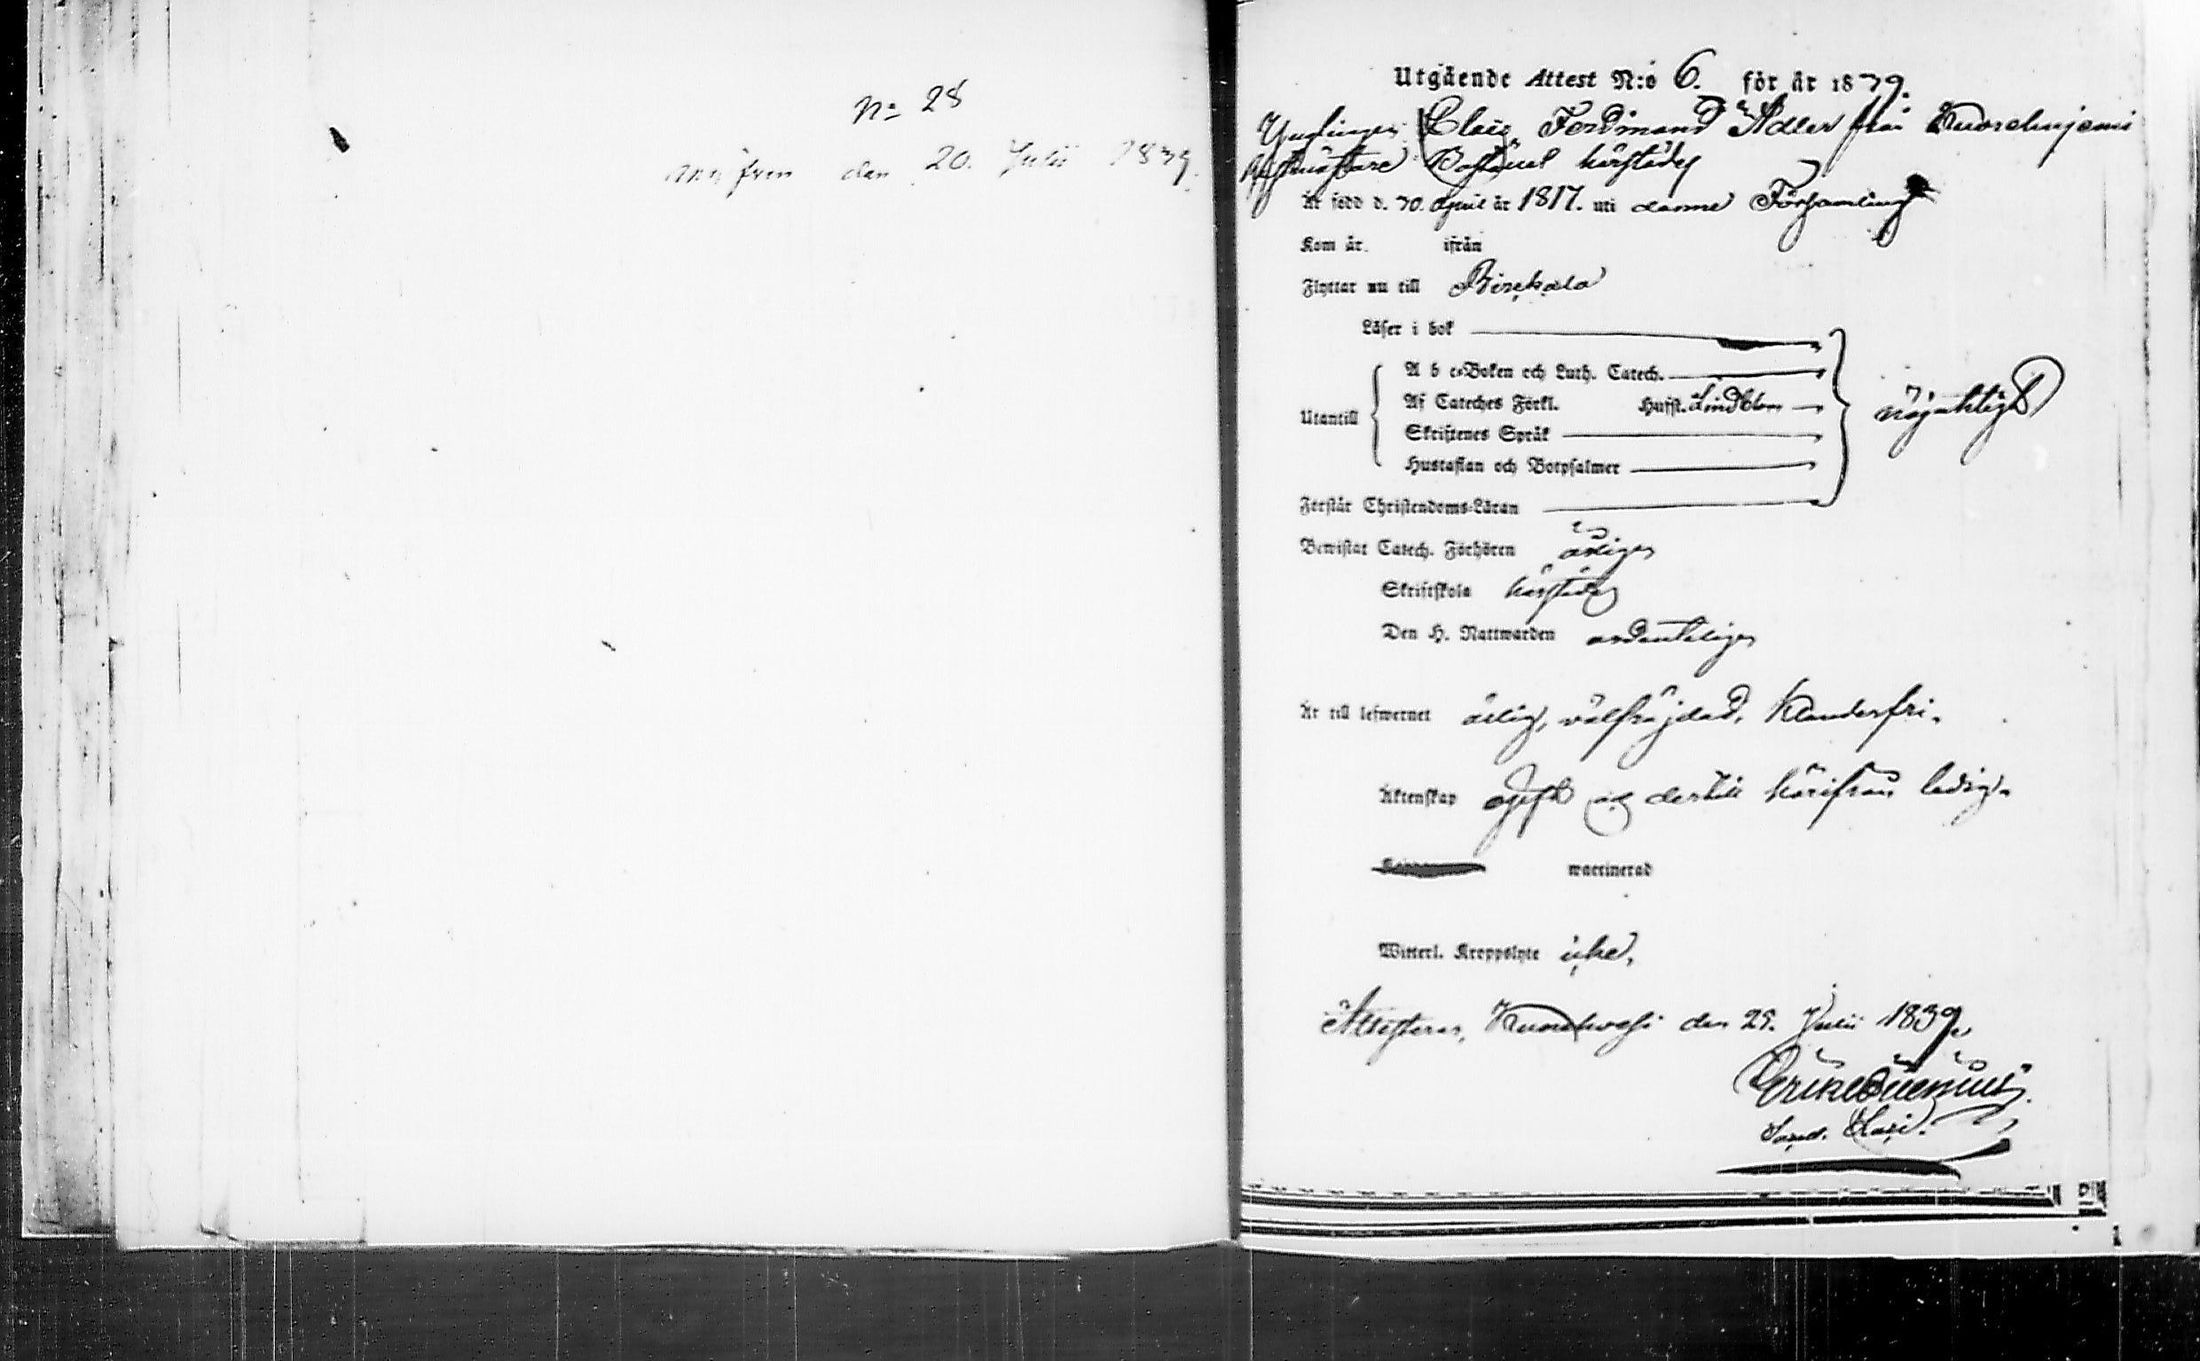 No 28
den 20. Julii 1839.
Utgående Attest N:o 6. för år 1839.
Ynglingen Claes Ferdinand Adler från
Rustmästare Bostäul härstädes
Är född d. 30. April år 1817. uti denne Församling
Kom år ifrån
Flyttar nu till Birckala
Läser i bok
A b c-Boken och Luth. Catech.
Af Cateches Förkl. Huffst. Lindblom
Utantill
nöjaktigt
Skriftenes Språk
Hustaflan och Botpsalmer
Förstår Christendoms-Läran
Bewistat Catech. Förhören årligen
Skriftskola härstädes
Den H. Nattwarden ordenteligen
Är till lefwernet ärlig, välfräjdad, klanderfri.
Äktenskap ogift och dertill härifrån ledig.
waccinerad
Witterl. Kroppslyte icke.
Attesteras, den 29. Julii 1839.